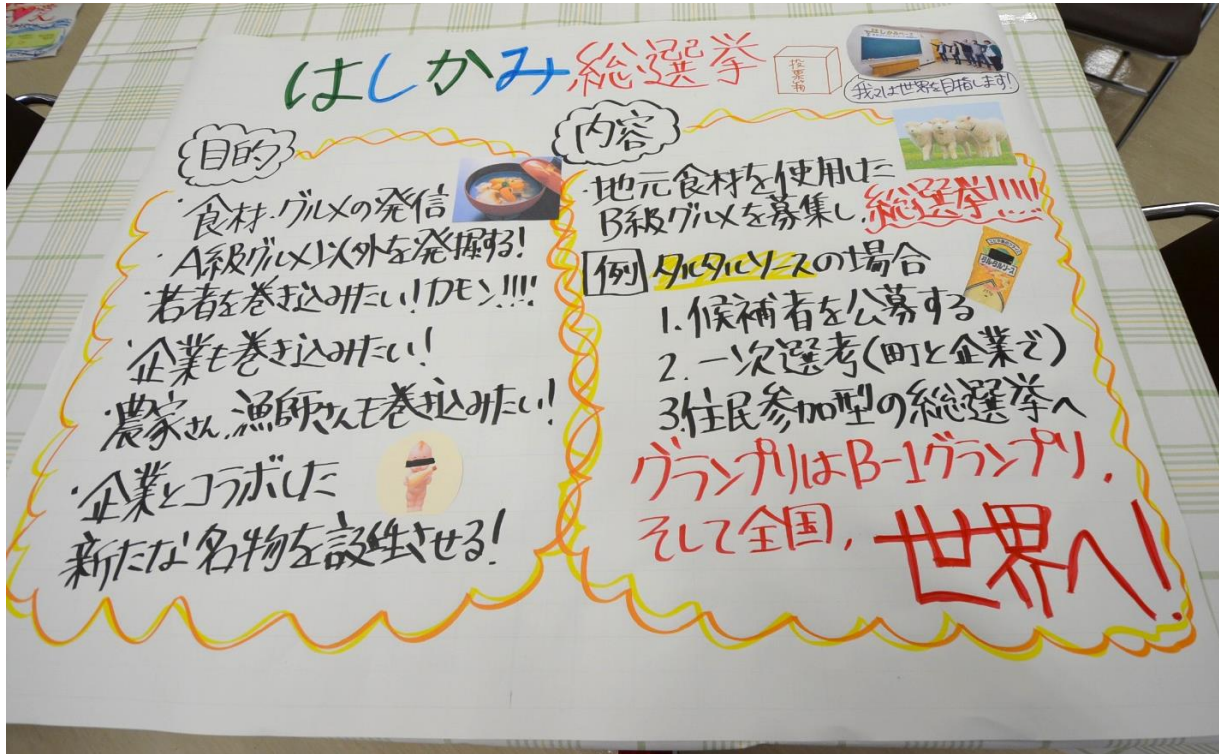 はしかみ総選挙
投票箱
我々は世界を目指します!
目的
・食材・グルメの発信
・A級グルメ以外を発掘する!
・若者を巻き込みたい!カモン!!!!
・企業も巻き込みたい!
・農家さん、漁師さんも巻き込みたい!
・企業とコラボした
新たな名物を誕生させる!
内容
・地元食材を使用した
B級グルメを募集し、総選挙!!!!!
例 タルタルソースの場合
1.候補者を公募する
2.一次選考(町と企業で)
3.住民参加型の総選挙へ
グランプリはB-1グランプリ、
そして全国、世界へ!
タルタルソース